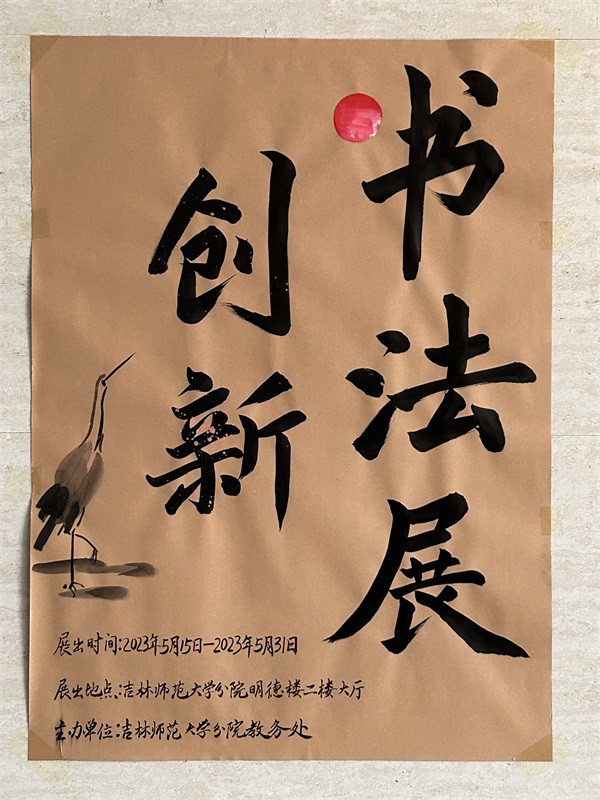 书法展
创新
展出时间:2023年5月15日—2023年5月31日
展出地点:吉林师范大学分院明德楼二楼大厅
主办单位:吉林师范大学分院教务处